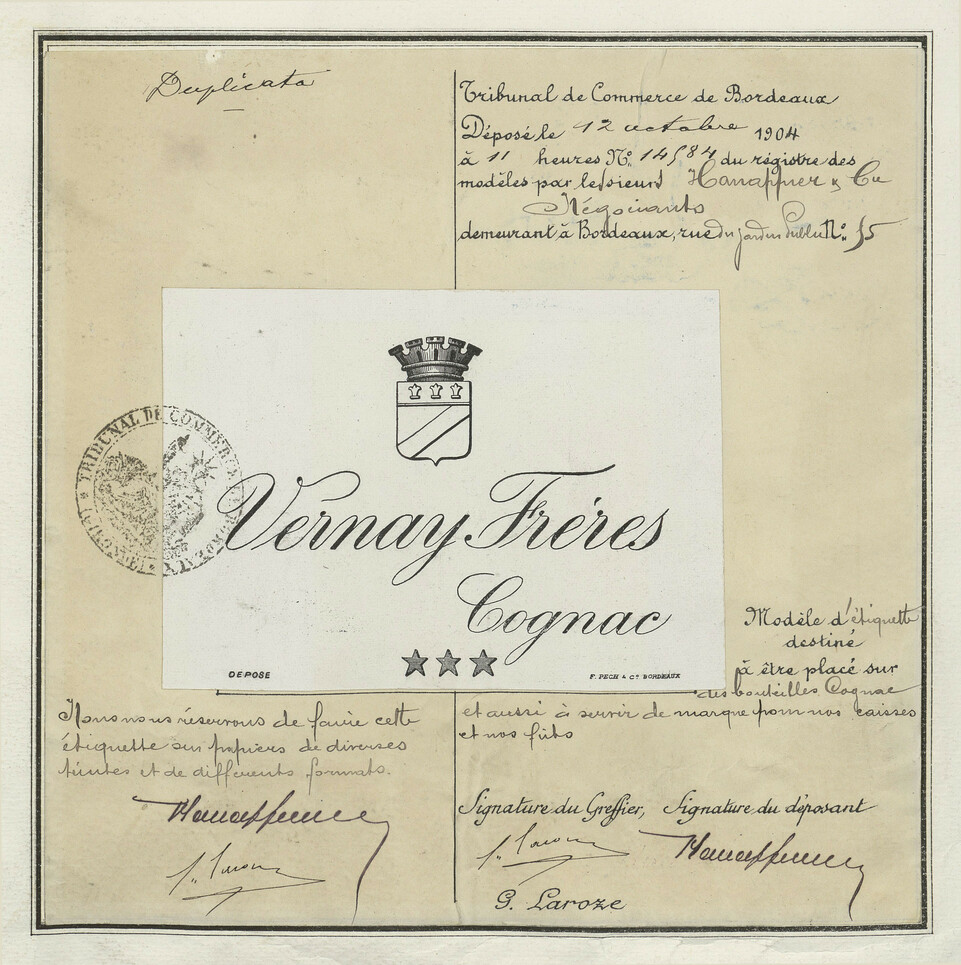 Duplicata
Tribunal de Commerce de Bordeaux
Déposé le 12 octobre 1904
à 11 heures No. 14584 du régistre des
modèles par les sieurs Hanappier & Cie
Négociants
demeurant à Bordeaux, rue du jardin Public No. 55
TRIBUNAL DE COMMERCE
Vernay Fréres
Cognac
DEPOSE
F. PECH & Co. BORDEAUX
Modèle d'étiquette
destiné
à être placé sur
des bouteilles Cognac
et aussi à servir de marque pour nos caisses
et nos fûts
Nous nous réservons de faire cette
étiquette sur papiers de diverses
teintes et de différents formats.
Signature du Greffier, Signature du déposant
G. Laroze